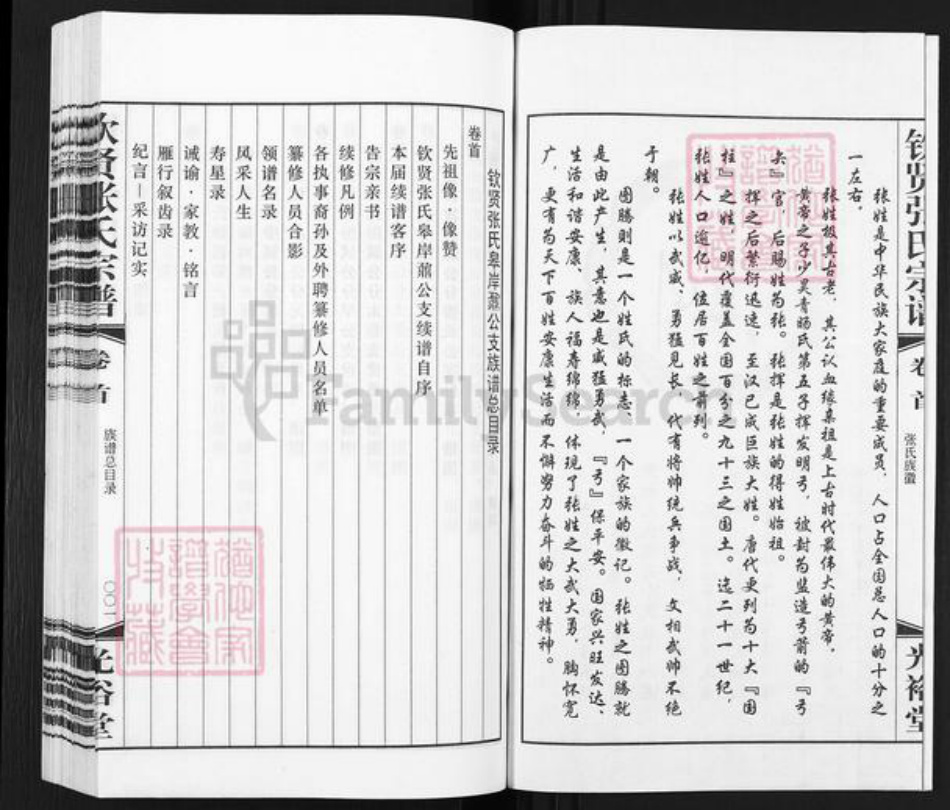 钦贤张氏宗谱
卷首
张氏族徽
光裕堂
张姓是中华民族大家庭的重要成员，人口占全国总人口的十分之
一左右。
张姓极其古老，其公认血缘亲祖是上古时代最伟大的黄帝。
黄帝之子少昊青阳氏第五子挥发明弓，被封为监造弓箭的『弓
长』官，后赐姓为张。张挥是张姓的得姓始祖。
挥之后繁衍迅速，至汉已成巨族大姓。唐代更列为十大『国
柱』之姓，明代覆盖全国百分之九十三之国土。迄二十一世纪，
张姓人口逾亿，位居百姓之前列。
张姓以武威、勇猛见长，代有将帅统兵争战，文相武帅不绝
于朝。
图腾则是一个姓氏的标志，一个家族的徽记。张姓之图腾就
是由此产生，其意也是威猛勇武，『弓』保平安。国家兴旺发达、
生活和谐安康、族人福寿绵绵，体现了张姓之大武大勇，胸怀宽
广，更有为天下百姓安康生活而不懈努力奋斗的牺牲精神。
钦贤张氏皋岸鼐公支族谱总目录
卷首
先祖像·像赞
钦贤张氏皋岸鼐公支续谱自序
本届续谱客序
告宗亲书
续修凡例
各执事裔孙及外聘纂修人员名单
纂修人员合影
领谱名录
风采人生
寿星录
诫谕·家教·铭言
雁行叙齿录
纪言—采访记实
钦贤张氏宗谱
卷首
族谱总目录
〇〇一
光裕堂
FamilySearch